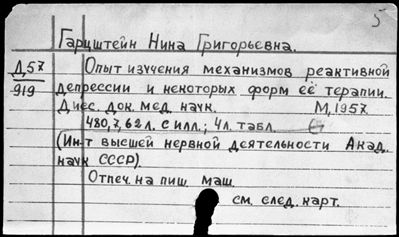 5
Гарцштейн Нина Григорьевна.
Д57 Опыт изучения механизмов реактивной
919 депрессии и некоторых форм её терапии.
Дисс. док. мед. наук. М, 1957.
480, 7, 62 л. с илл.; 4 л. табл.
(Ин-т высшей нервной деятельности Акад.
наук СССР).
Отпеч. на пиш. маш.
см. след. карт.